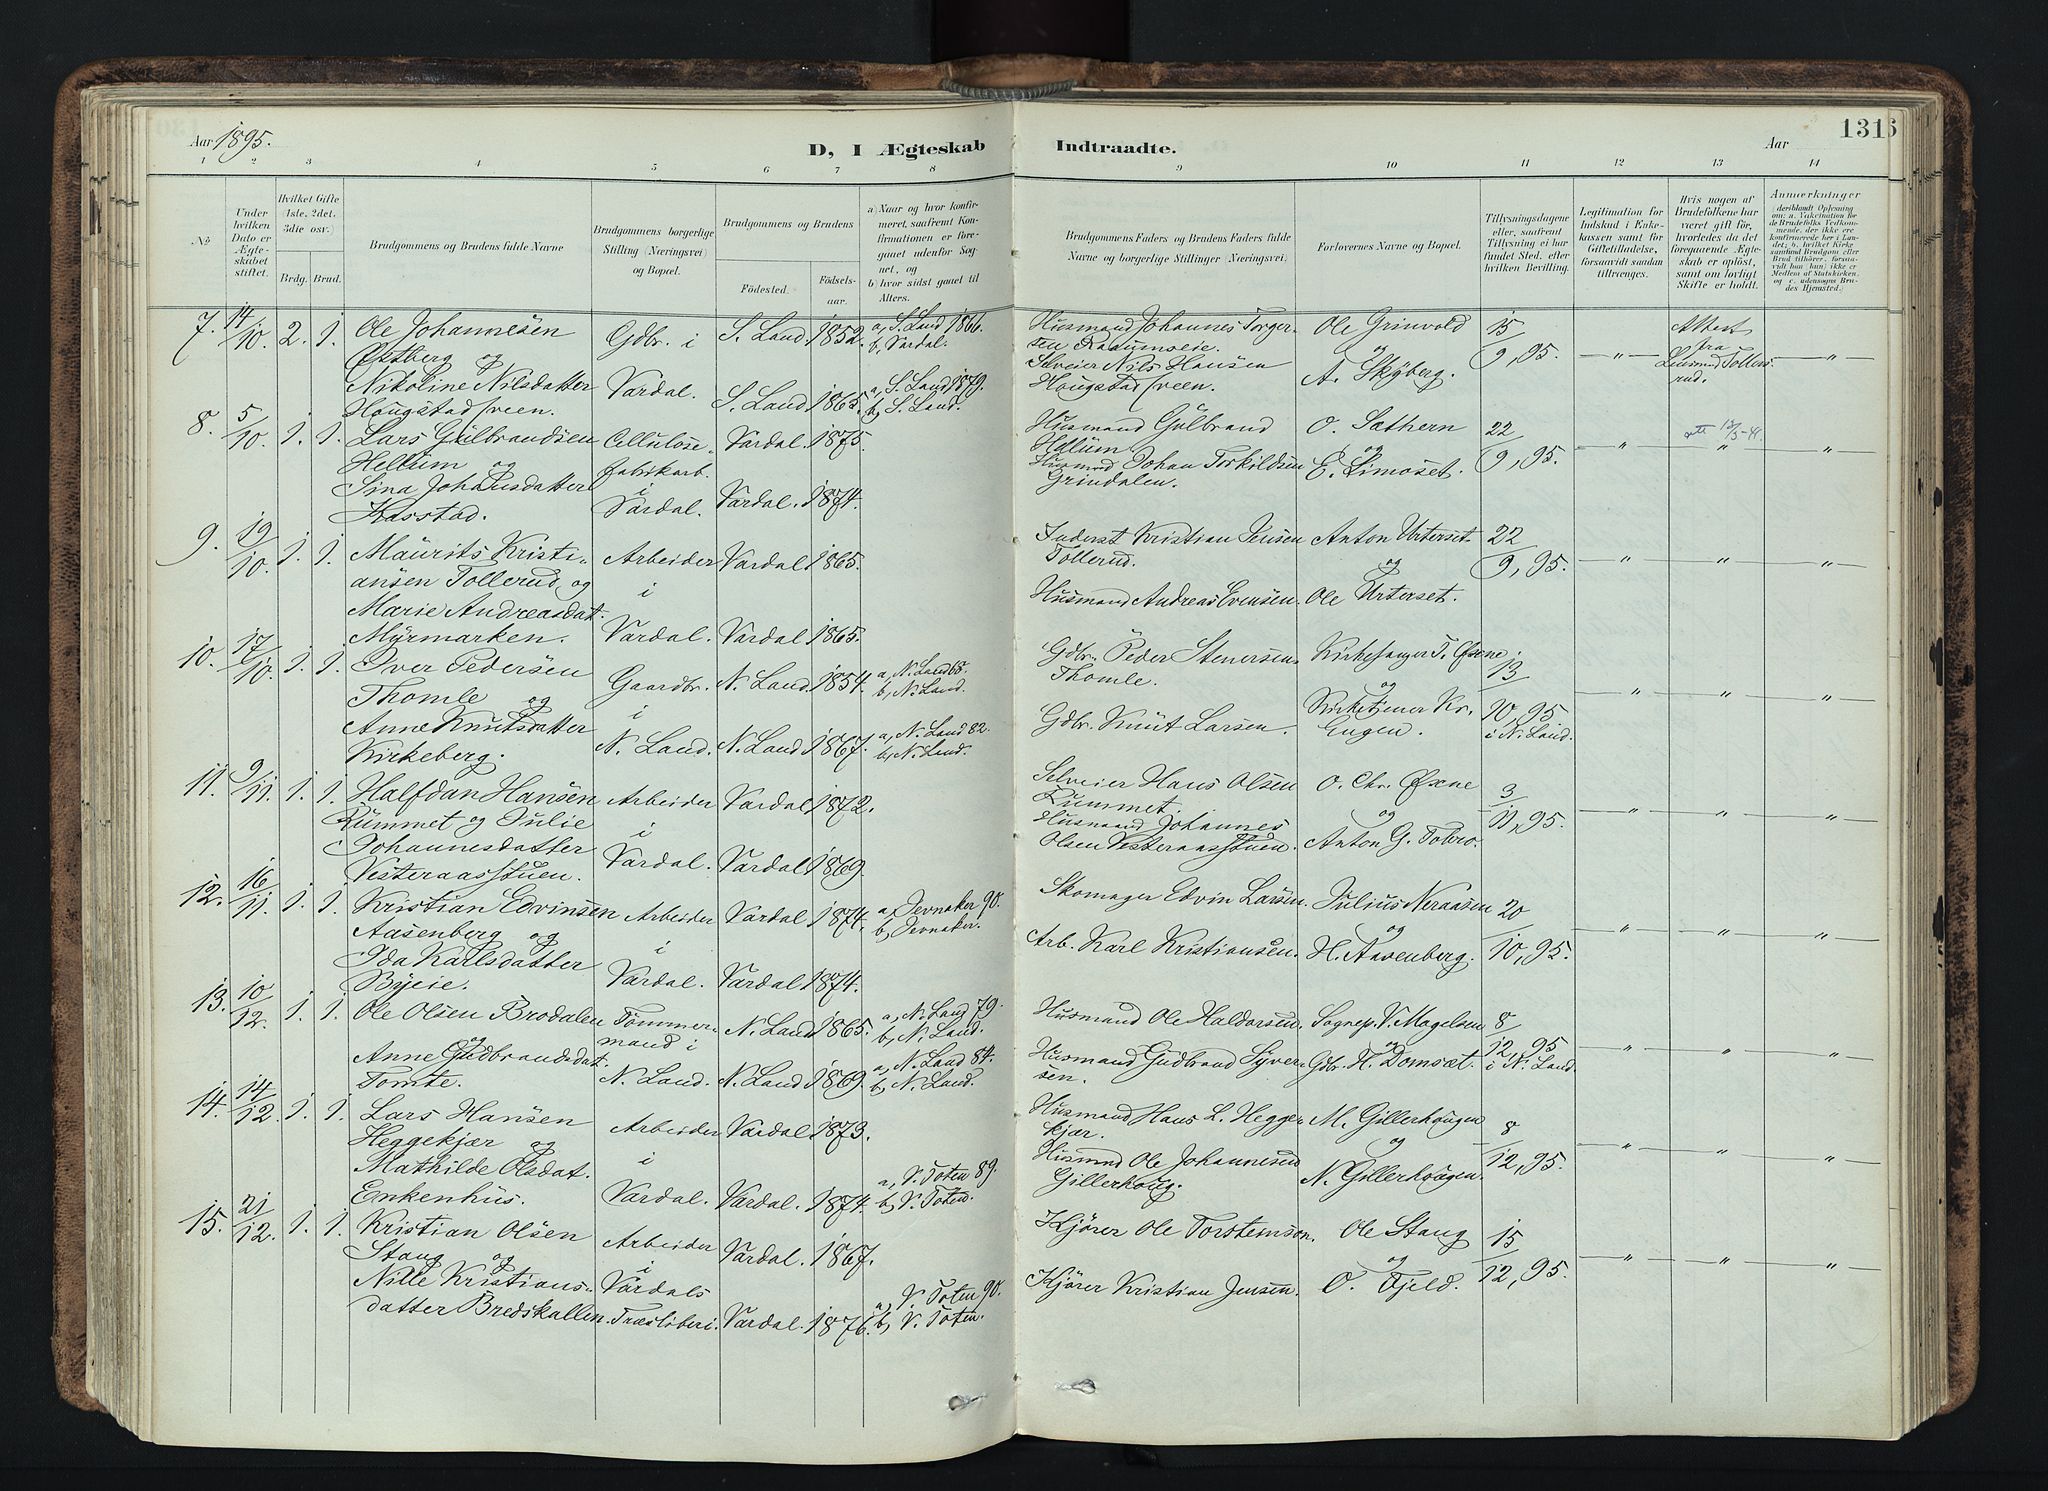 Aar 1895.
D, I Ægteskab Indtraadte.
Aar
131
1 2 3 4 5 6 7 8 9 10 11 12 13 14
No
Under hvilken Dato er Ægteskabet stiftet.
Hvilket Gifte (1ste, 2det, 3die osv.)
Brdg. Brud.
Brudgommens og Brudens fulde Navne
Brudgommens borgerlige Stilling (Næringsvei) og Bopæl.
Brudgommens og Brudens
Födested. Födselsaar.
a) Naar og hvor konfirmeret, saafremt Konfirmationen er foregaaet udenfor Sognet, og
b) hvor sidst gaaet til Alters.
Brudgommens Faders og Brudens Faders fulde Navne og borgerlige Stillinger (Næringsvei.)
Forlovernes Navne og Bopæl.
Tillysningsdagene eller, saafremt Tillysning ei har fundet Sted, efter hvilken Bevilling.
Legitimation for Indskud i Enkekassen samt for Giftetilladelse, forsaavidt saadan tiltrænges.
Hvis nogen af Brudefolkene har været gift før, hvorledes da det foregaaende Ægteskab er opløst, samt om lovligt Skifte er holdt.
Anmerkninger
7. 14/10. 2. 1. Ole Johannesen Østberg og
Gdbr. i Vardal.
S. Land 1852. a, S. Land 1866. b, Vardal.
Nikoline Nilsdatter Hougstadsveen.
S. Land 1865. a, S. Land 1879. b, S. Land.
Husmand Johannes Torgersen
Selveier Nils Hansen Hougstadsveen.
Ole Grinvold og A. Skyberg.
15/9, 95. — " —
Attest fra
— " —
8. 5/10. 1. 1. Lars Gulbrandsen Hellum og
Sina Johansdatter
Cellulosefabrikarb. i Vardal.
Vardal. 1875.
Vardal. 1874.
Husmand Gulbrand Hellum
Husmand Johan Torkildsen Grindalen.
O. Sathern og E. Limoset.
22/9, 95. " " "
9. 19/10. 1. 1. Maurits Kristiansen Tollerud og
Marie Andreasdat. Myrmarken.
Arbeider i Vardal.
Vardal 1865.
Vardal 1865.
Inderst Kristian Jensen Tollerud.
Husmand Andreas Evensen.
Anton Urterset og Ole Urterset.
22/9, 95. — " — — " — — " —
10. 17/10. 1. 1. Iver Pedersen Thomle og
Anne Knutsdatter Kirkeberg.
Gaardbr. i N. Land.
N. Land. 1854. a, N. Land 68. b, N. Land.
N. Land 1867. a, N. Land 82. b, N. Land.
Gdbr. Peder Stenersen Thomle.
Gdbr. Knut Larsen.
Kirkesanger T. Øxne og
Kirketjener Kr. Engen.
13/10, 95 i N. Land. " " "
11. 9/11. 1. 1. Halfdan Hansen Rummet og Julie
Johannesdatter Vesteraasstuen.
Arbeider i Vardal.
Vardal 1872.
Vardal 1869.
Selveier Hans Olsen Rummet.
Husmand Johannes Olsen Vesteraasstuen.
O. Chr. Øxne og Anton G. Tobro.
3/11, 95. — " — — " — — " —
12. 16/11. 1. 1. Kristian Edvinsen Aasenberg og
Ida Karlsdatter Byeie.
Arbeider i Vardal.
Vardal 1874. a, Jevnaker 90. b, Jevnaker.
Vardal 1874.
Skomager Edvin Larsen.
Arb. Karl Kristiansen.
Julius Neraasen og H. Aavenberg.
20/10, 95. — " — — " — — " —
13. 10/12. 1. 1. Ole Olsen Brodalen og
Anne Gudbrandsdat. Tomte.
Tømmermand i N. Land.
N. Land 1865. a, N. Land 79. b, N. Land.
N. Land 1869. a, N. Land 84. b, N. Land.
Husmand Ole Haldorsen.
Husmand Gudbrand Syversen.
Sognep. V. Magelsen og Gdbr. H. Domsæt.
8/12, 95 i N. Land — " — — " — — " —
14. 14/12. 1. 1. Lars Hansen Heggekjær og
Mathilde Olsdat. Enkenhus.
Arbeider i Vardal.
Vardal 1873.
Vardal. 1874. a, V. Toten 89. b, V. Toten.
Husmand Hans L. Heggekjær.
Husmand Ole Johannesen Gillerhoug.
M. Gillerhougen og N. Gillerhougen.
8/12, 95. — " — — " — — " —
15. 21/12. 1. 1. Kristian Olsen Stang og
Nille Kristiansdatter Bredskallen
Arbeider i Vardals Træsliberi.
Vardal. 1867.
Vardal. 1876. a, V. Toten 90. b, V. Toten.
Kjører Ole Torstensen.
Kjører Kristian Jensen.
Ole Stang og O. Fjeld.
15/12, 95. — " — — " — — " —